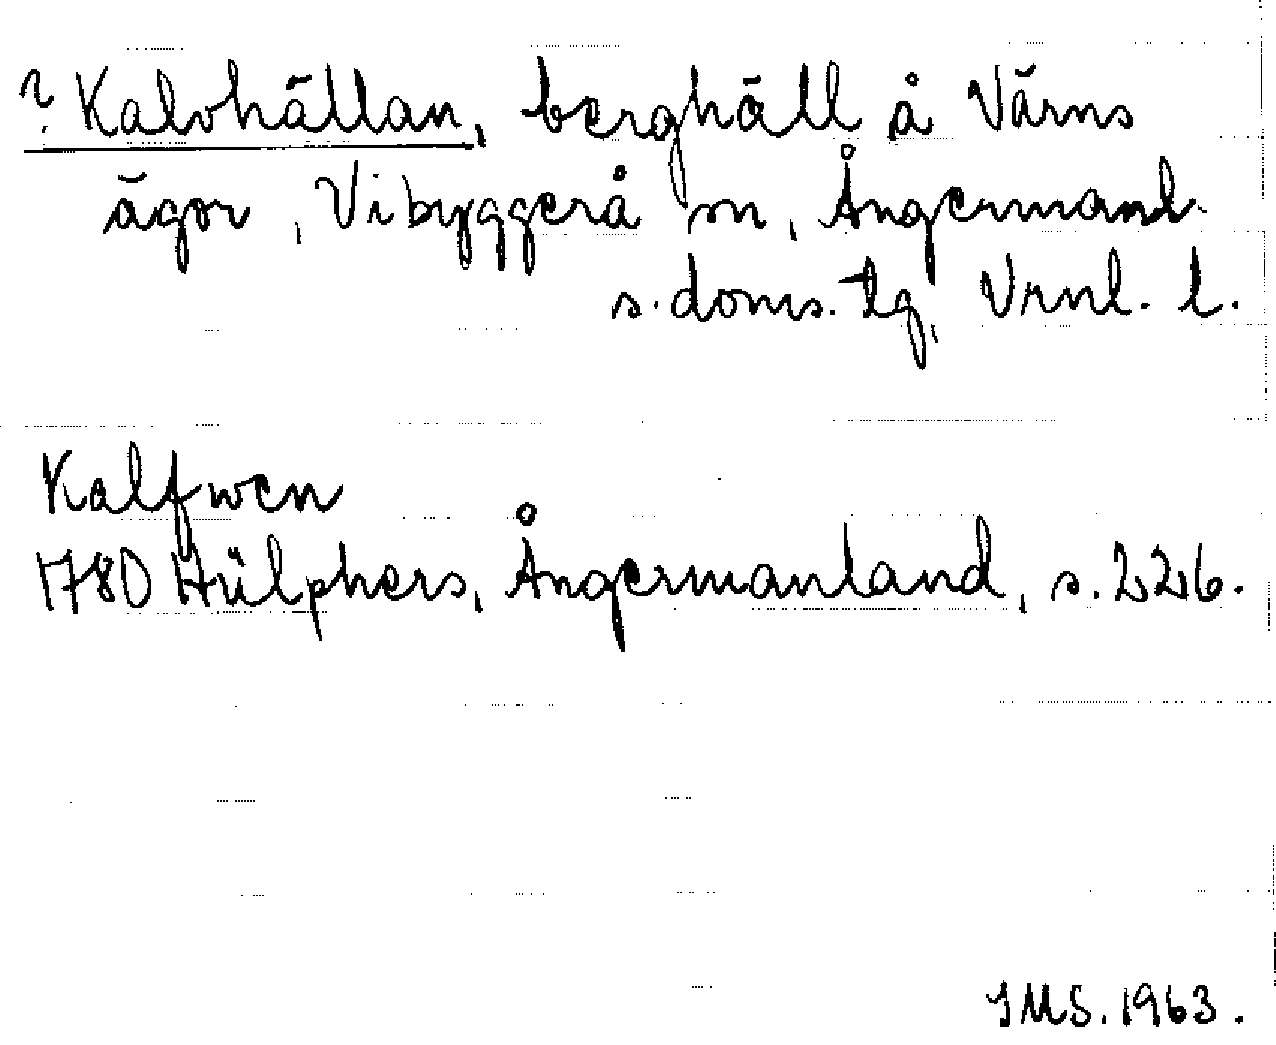 ? Kalvhällan, berghäll å Värns
ägor, Vibyggerå sn, Ångermanl.
s. doms. tg, Vrnl. l.
Kalfwen
1780 Hülphers, Ångermanland, s. 226.
IMS. 1963.